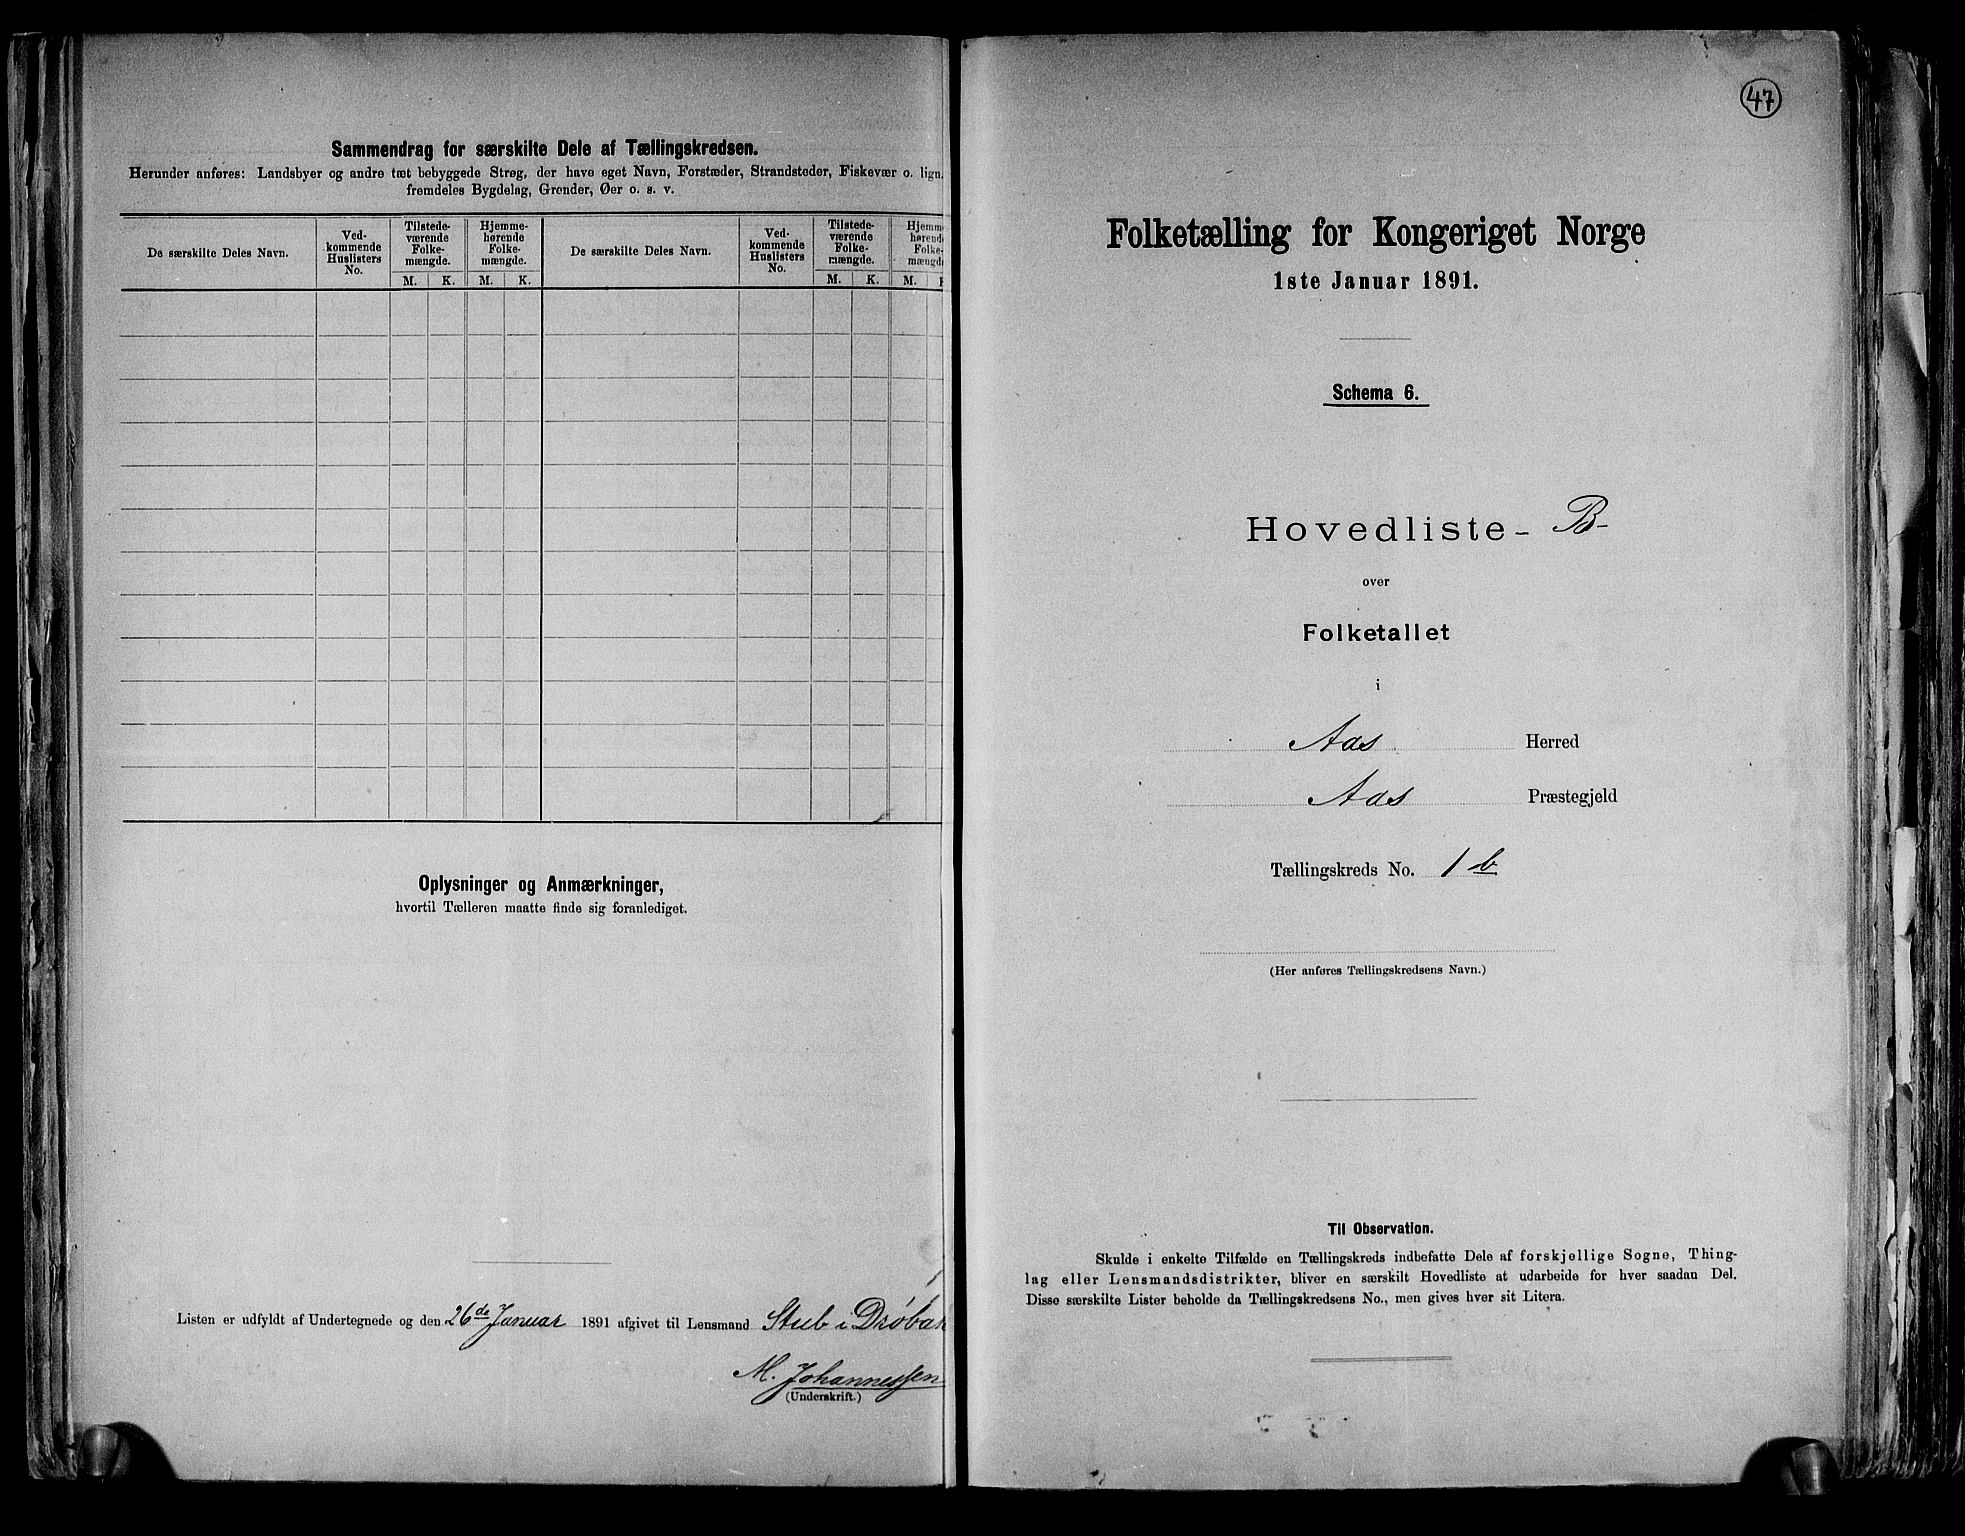 Sammendrag for særskilte Dele af Tællingskredsen.
Herunder anføres: Landsbyer og andre tæt bebyggede Strøg, der have eget Navn, Forstæder, Strandsteder, Fiskevær o. lign.
fremdeles Bygdelag, Grender, Øer o. s. v.
De særskilte Deles Navn.
Ved-
kommende
Huslisters
No.
Tilstede-
værende
Folke-
mængde.
Hjemme-
hørende
Folke-
mængde.
De særskilte Deles Navn.
Ved-
kommende
Huslisters
No.
Tilstede-
værende
Folke-
mængde.
Hjemme
hørende
Folke-
mængde
M. K. M. K. M. K. M. K
Oplysninger og Anmærkninger,
hvortil Tælleren maatte finde sig foranlediget.
Listen er udfyldt af Undertegnede og den 26de Januar 1891 afgivet til Lensmand Stub i Drøbak
M. Johannessen
(Underskrift.)
47
Folketælling for Kongeriget Norge
1ste Januar 1891.
Schema 6.
Hovedliste - B-
over
Folketallet
i
Aas Herred
Aas Præstegjeld
Tællingskreds No. 1 b
(Her anføres Tællingskredsens Navn.)
Til Observation.
Skulde i enkelte Tilfælde en Tællingskreds indbefatte Dele af forskjellige Sogne, Thing-
lag eller Lensmandsdistrikter, bliver en særskilt Hovedliste at udarbeide for hver saadan Del.
Disse særskilte Lister beholde da Tællingskredsens No., men gives hver sit Litera.